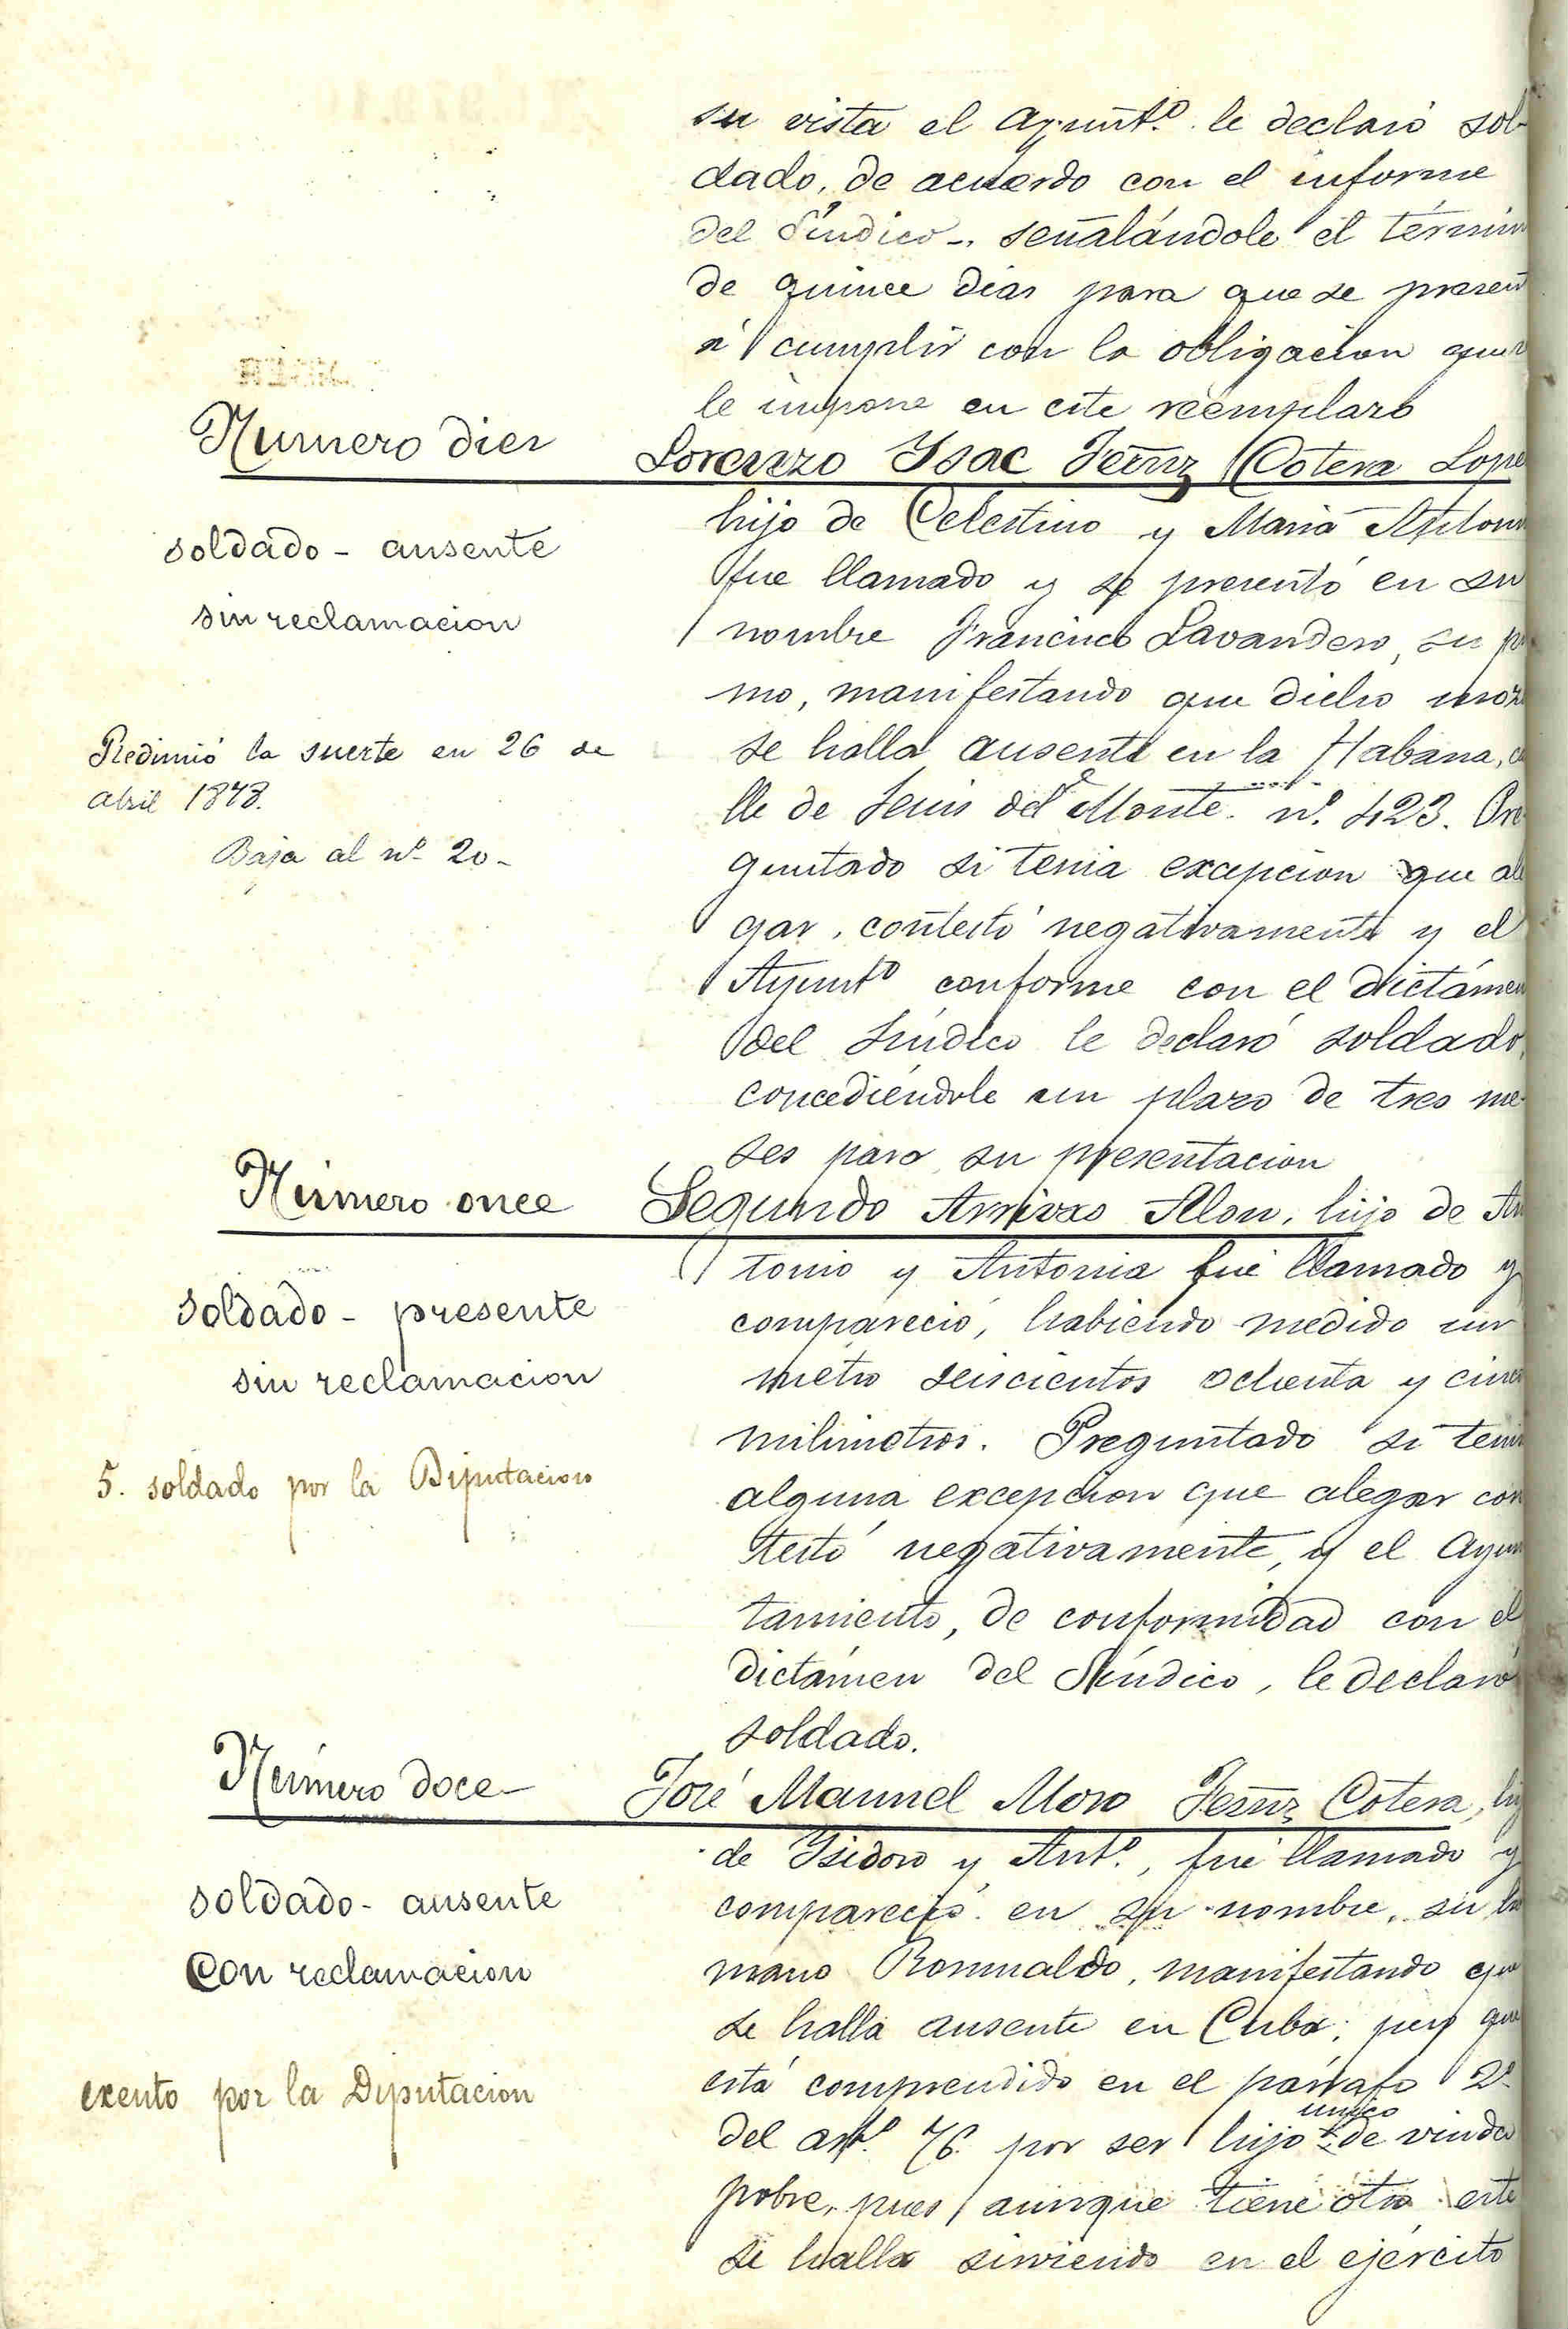 su vista el Ayuntº. le declaró sol-
dado, de acuerdo con el informe
del Síndico-. señalándole el términ
de quince dias para que se present
á cumplir con la obligacion que
le impone en este reemplazo
Numero diez
Lorenzo Ysac Fernz Cotera Lope
hijo de Celestino y Maria Anton
soldado - ausente
fue llamado y se presentó en su
sin reclamacion
nombre Francisco Lavandero, su pr
mo, manifestando que dicho moz
Redimió la suerte en 26 de
abril 1878.
Baja al nº 20-
se halla ausente en la Habana, ca
lle de Jesus del Monte. nº. 423. Pre
guntado si tenia excepcion que ale
gar, contestó negativamente y el
Ayuntº conforme con el dictámen
del Síndico le declaró soldado,
concediéndole un plazo de tres me-
ses para su presentacion
Número once
Segundo Arrivas Alon, hijo de An
tonio y Antonia fué llamado y
soldado - presente
compareció, habiendo medido un
sin reclamacion
metro seiscientos ochenta y cinco
milimetros. Preguntado si tenia
5. soldado por la Diputacion
alguna excepcion que alegar con
testó negativamente, y el Ayun
tamiento, de conformidad con el
dictámen del Síndico, le declaró
soldado.
Número doce-
José Manuel Moro Fernz Cotera, hij
de Ysidoro y Antª., fué llamado y
soldado - ausente
compareció en su nombre, su her
Con reclamacion
mano Romualdo, manifestando que
se halla ausente en Cuba; pero que
exento por la Diputacion
está comprendido en el párrafo 2º
del artº. 76 por ser hijo único de viuda
pobre, pues aunque tiene otro este
se halla sirviendo en el ejército